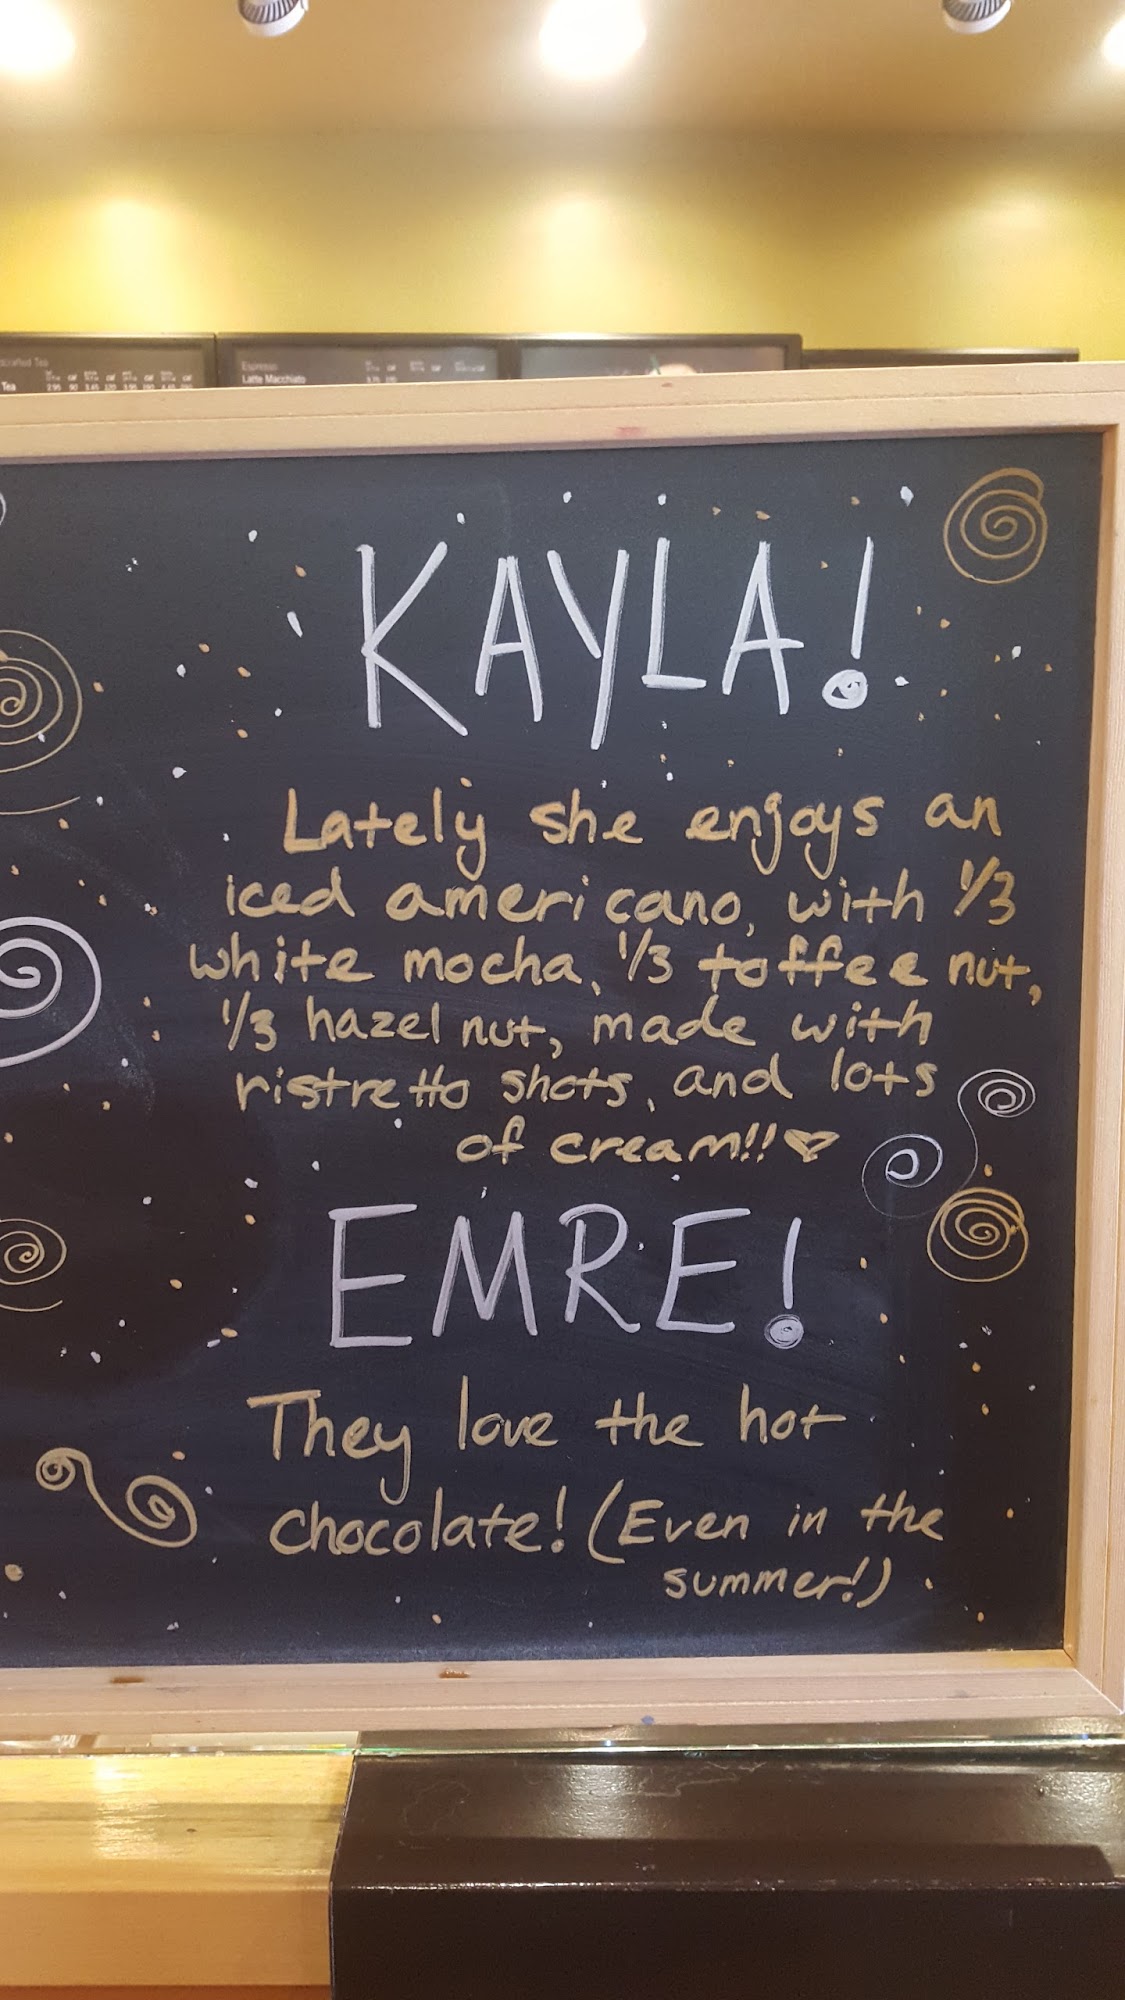 Espresso
Latte Macchiato
Tea
KAYLA!
Lately she enjoys an
iced americano, with 1/3
white mocha, 1/3 toffee nut,
1/3 hazelnut, made with
ristretto shots, and lots
of cream!!♡
EMRE!
They love the hot
chocolate! (Even in the
summer!)